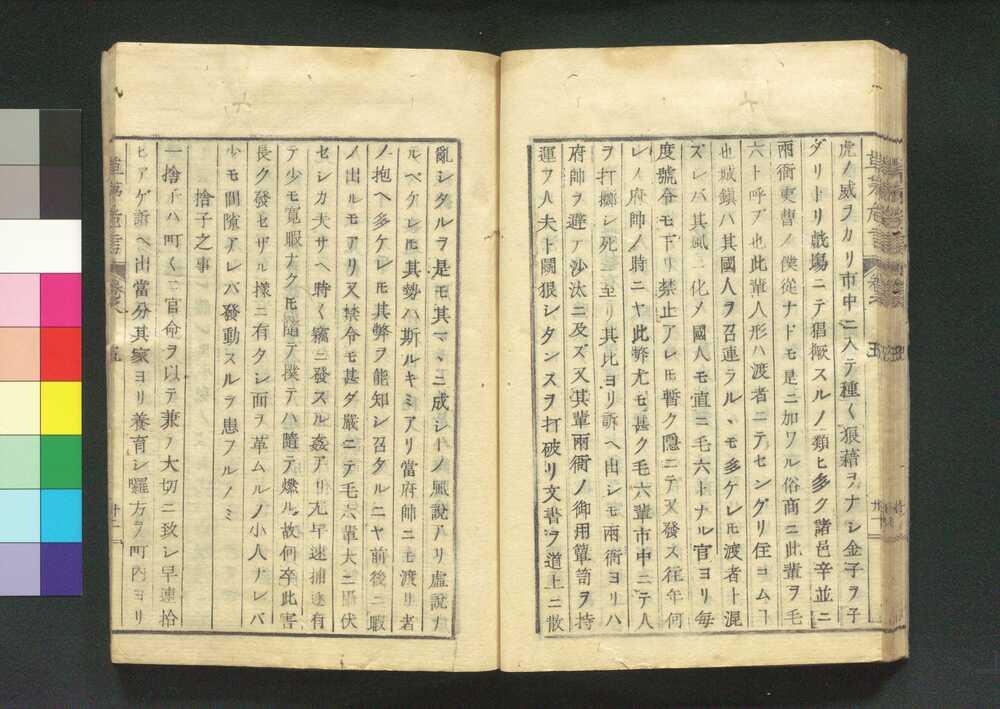 虎ノ威ヲカリ市中ニ入テ種〱狼藉ヲナシ金子ヲ子
ダリトリ戯場ニテ猖獗スルノ類ヒ多ク諸邑辛並ニ
兩衙吏曹ノ僕從ナドモ是ニ加ワル俗商ニ此輩ヲ毛
六ト呼ブ也此輩人形ハ渡者ニテセングリ住コムヿ
也城鎮ハ其國人ヲ召連ラルヽモ多ケレ𪜈渡者ト混
ズレバ其風ニ化メ國人モ直ニ毛六トナル官ヨリ毎
度號令モ下リ禁止アレ𪜈暫ク隱ニテ又發ス往年何
レノ府帥ノ時ニヤ此弊尤モ甚ク毛六輩市中ニテ人
ヲ打擲シ死ニ至リ其比ヨリ訴ヘ出シモ兩衙ヨリハ
府帥ヲ避ア沙汰ニ及ズ又其輩兩衙ノ御用簞笥ヲ持
運フ人夫ト鬭狠シタンスヲ打破リ文書ヲ道上ニ散
亂シタルヲ是モ其マヽニ成シヿノ風說アリ虛說ナ
ルベケレ𪜈其勢ハ斯ルキミアリ當府帥ニモ渡リ者
ノ抱ヘ多ケレ𪜈其弊ヲ能知シ召タルニヤ前後ニ暇
ノ出ルモアリ又禁令モ甚ダ嚴ニテ毛六輩大ニ攝伏
セシカ夫サヘ時〱竊ニ發スル姦アリ尤早速捕逐有
テ少モ寬暇ナク𪜈隨テ撲テハ隨テ燃ル故何卒此害
長ク發セザル樣ニ有タシ面ヲ革ムルノ小人ナレバ
少モ間隙アレバ發動スルヲ患フルノミ
捨子之事
一捨子ハ町〱ニ官命ヲ以テ兼ノ大切ニ致レ早速拾
ヒアゲ訴ヘ出當分其家ヨリ養育シ囉方ヲ町內ヨリ